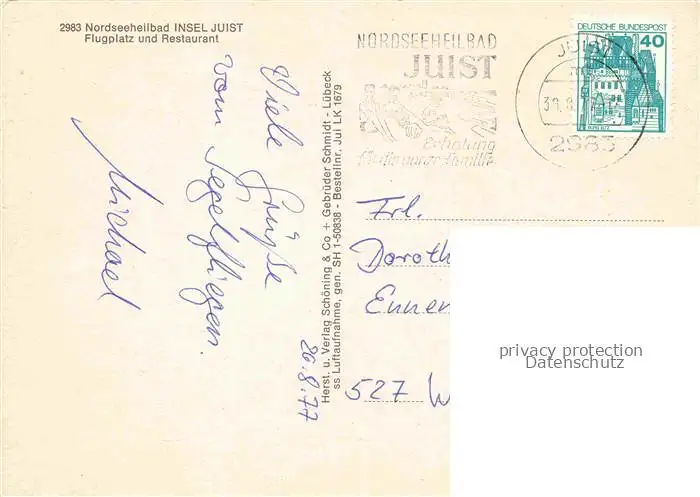 2983 Nordseeheilbad INSEL JUIST
Flugplatz und Restaurant
Viele Grüße
vom Segelfliegen.
Michael
26.8.77
Herst. u. Verlag Schöning & Co + Gebrüder Schmidt - Lübeck
ss Luftaufnahme, gen. SH 1-50838 - Bestellnr. Jui LK 1679
NORDSEEHEILBAD
JUIST
Erholung
DEUTSCHE BUNDESPOST
40
JUIST
2983
Frl.
Doroth
Ennen
527 W
privacy protection
Datenschutz